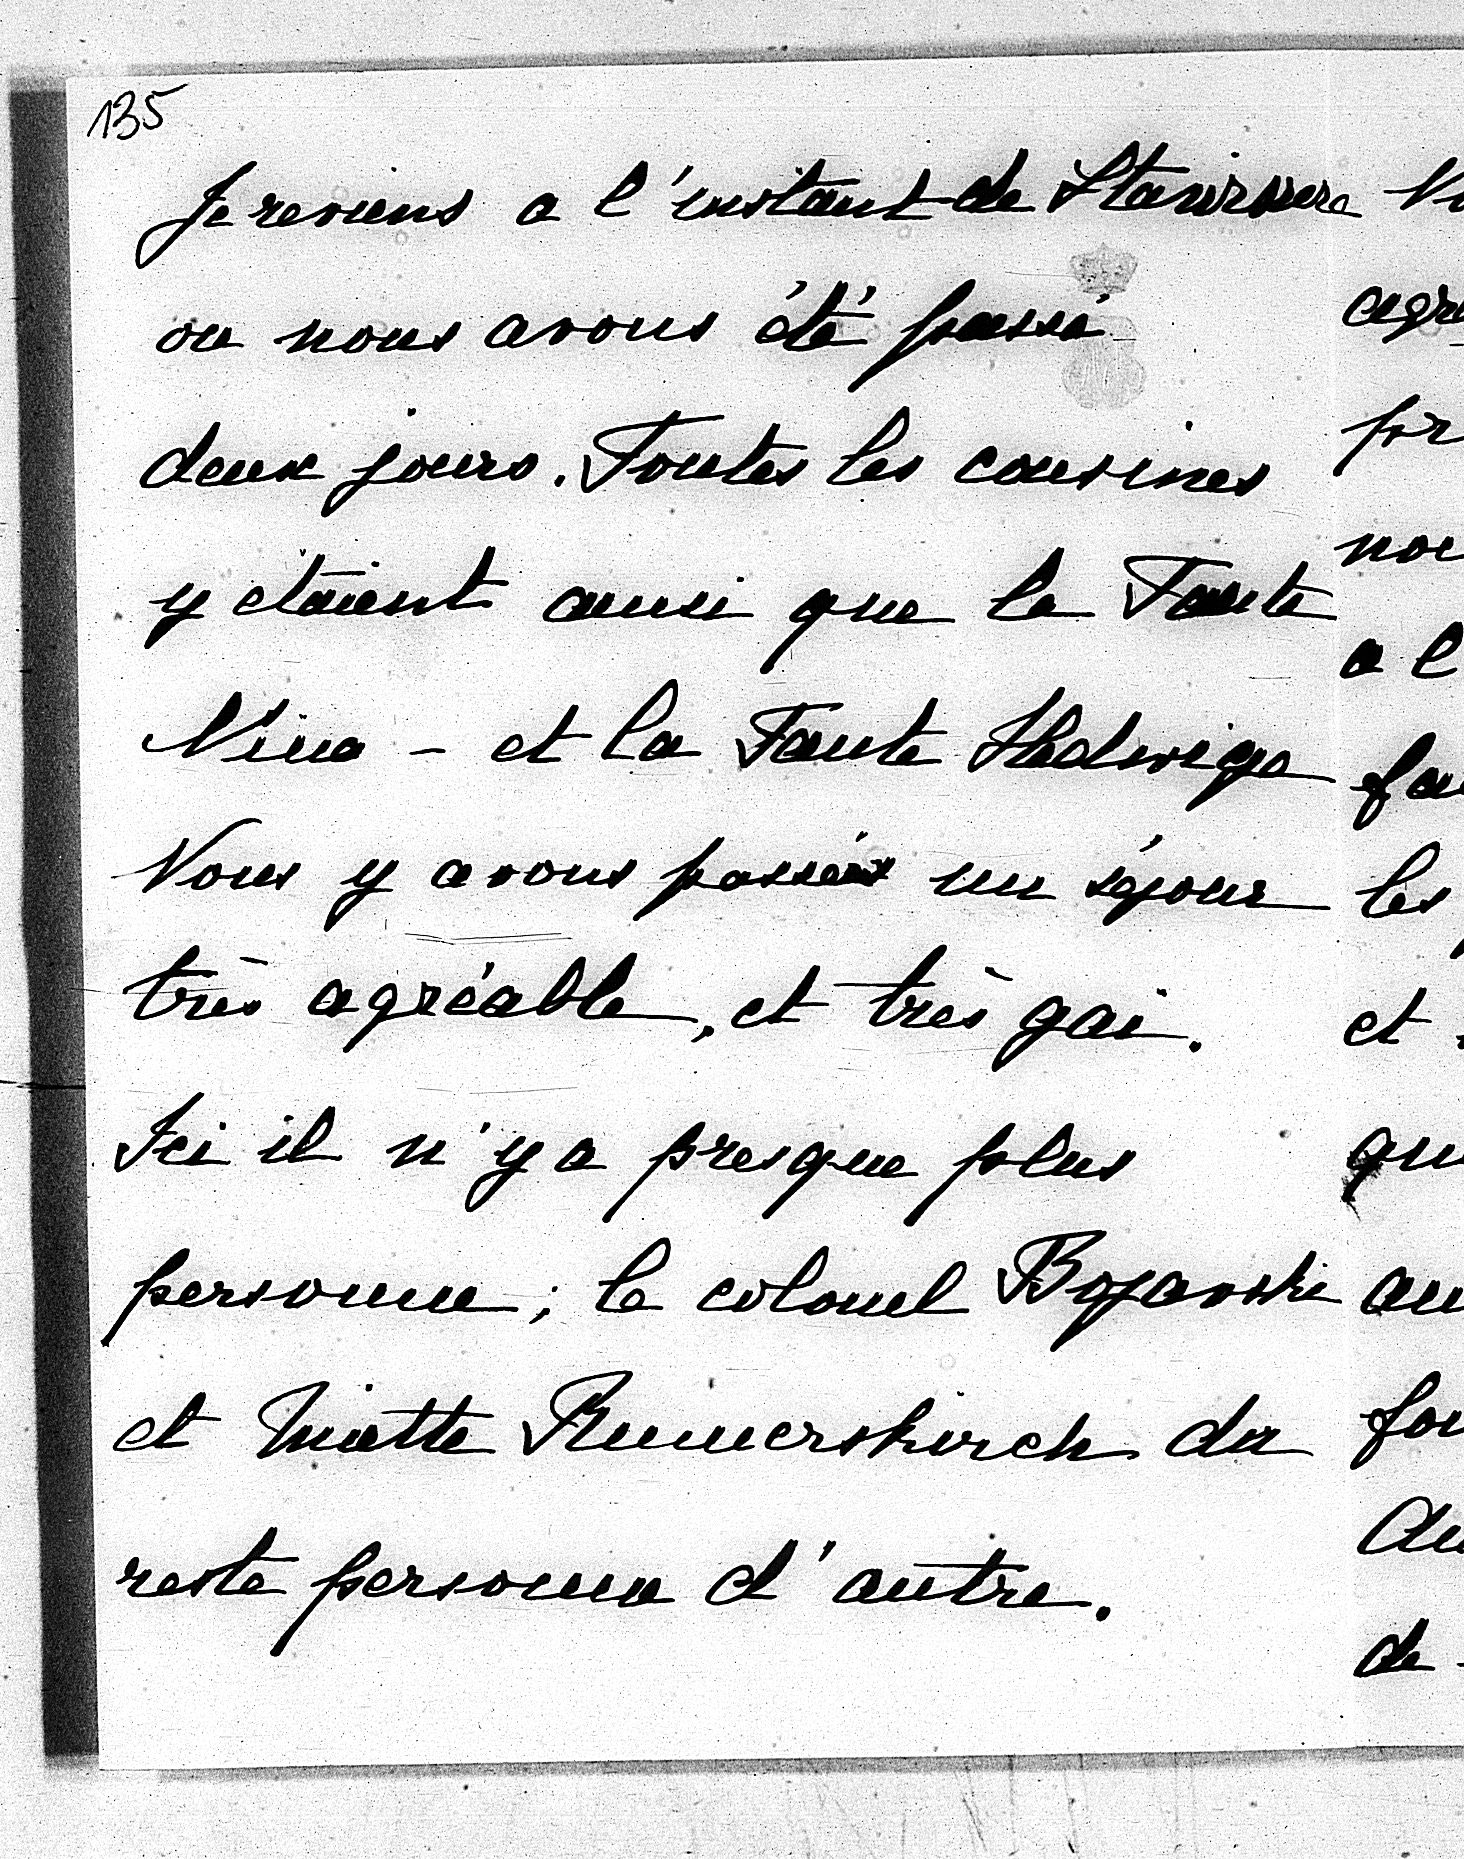 135
Je reviens a l'instant de
ou nous avons été passé
deux jours. Toutes les cousines
y etaient aussi que la Tante
Nina - et la Tante Hedwige
Nous y avons passées un séjour
très agréable, et très gai.
Ici il n'y a presque plus
personne; le colonel Bojanski
et Miette Rumerskirch du
reste personne d'autre.
les
et
de